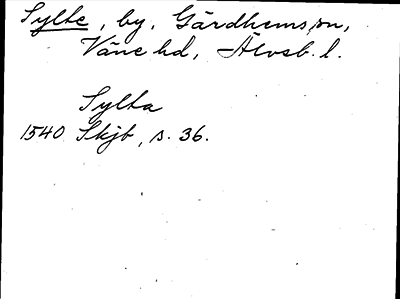 Sylte, by, Gärdhems sn,
Väne hd, Älvsb. l.
Sylta
1540 Skjb, s. 36.